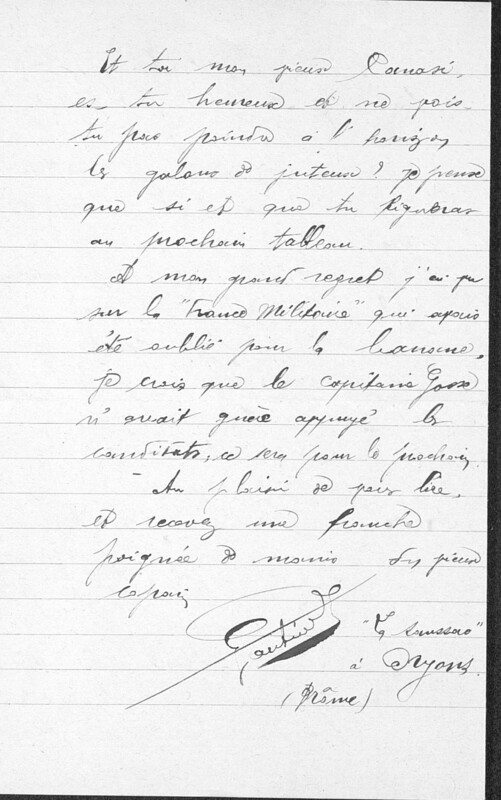 Et toi mon vieux Canari,
es tu heureux et ne vois
tu pas poindre à l'horizon
les galons de juteux? je pense
que si et que tu figureras
au prochain tableau.
A mon grand regret j'ai vu
sur la "France Militaire" que avais
été oublié pour la banane,
je crois que le capitaine
n'avait guère appuyé les
candidats, ce sera pour le prochain.
Au plaisir de vous lire,
et recevez une franche
poignée de mains du vieux
copain
Gautier
à Nyons
(Drôme)